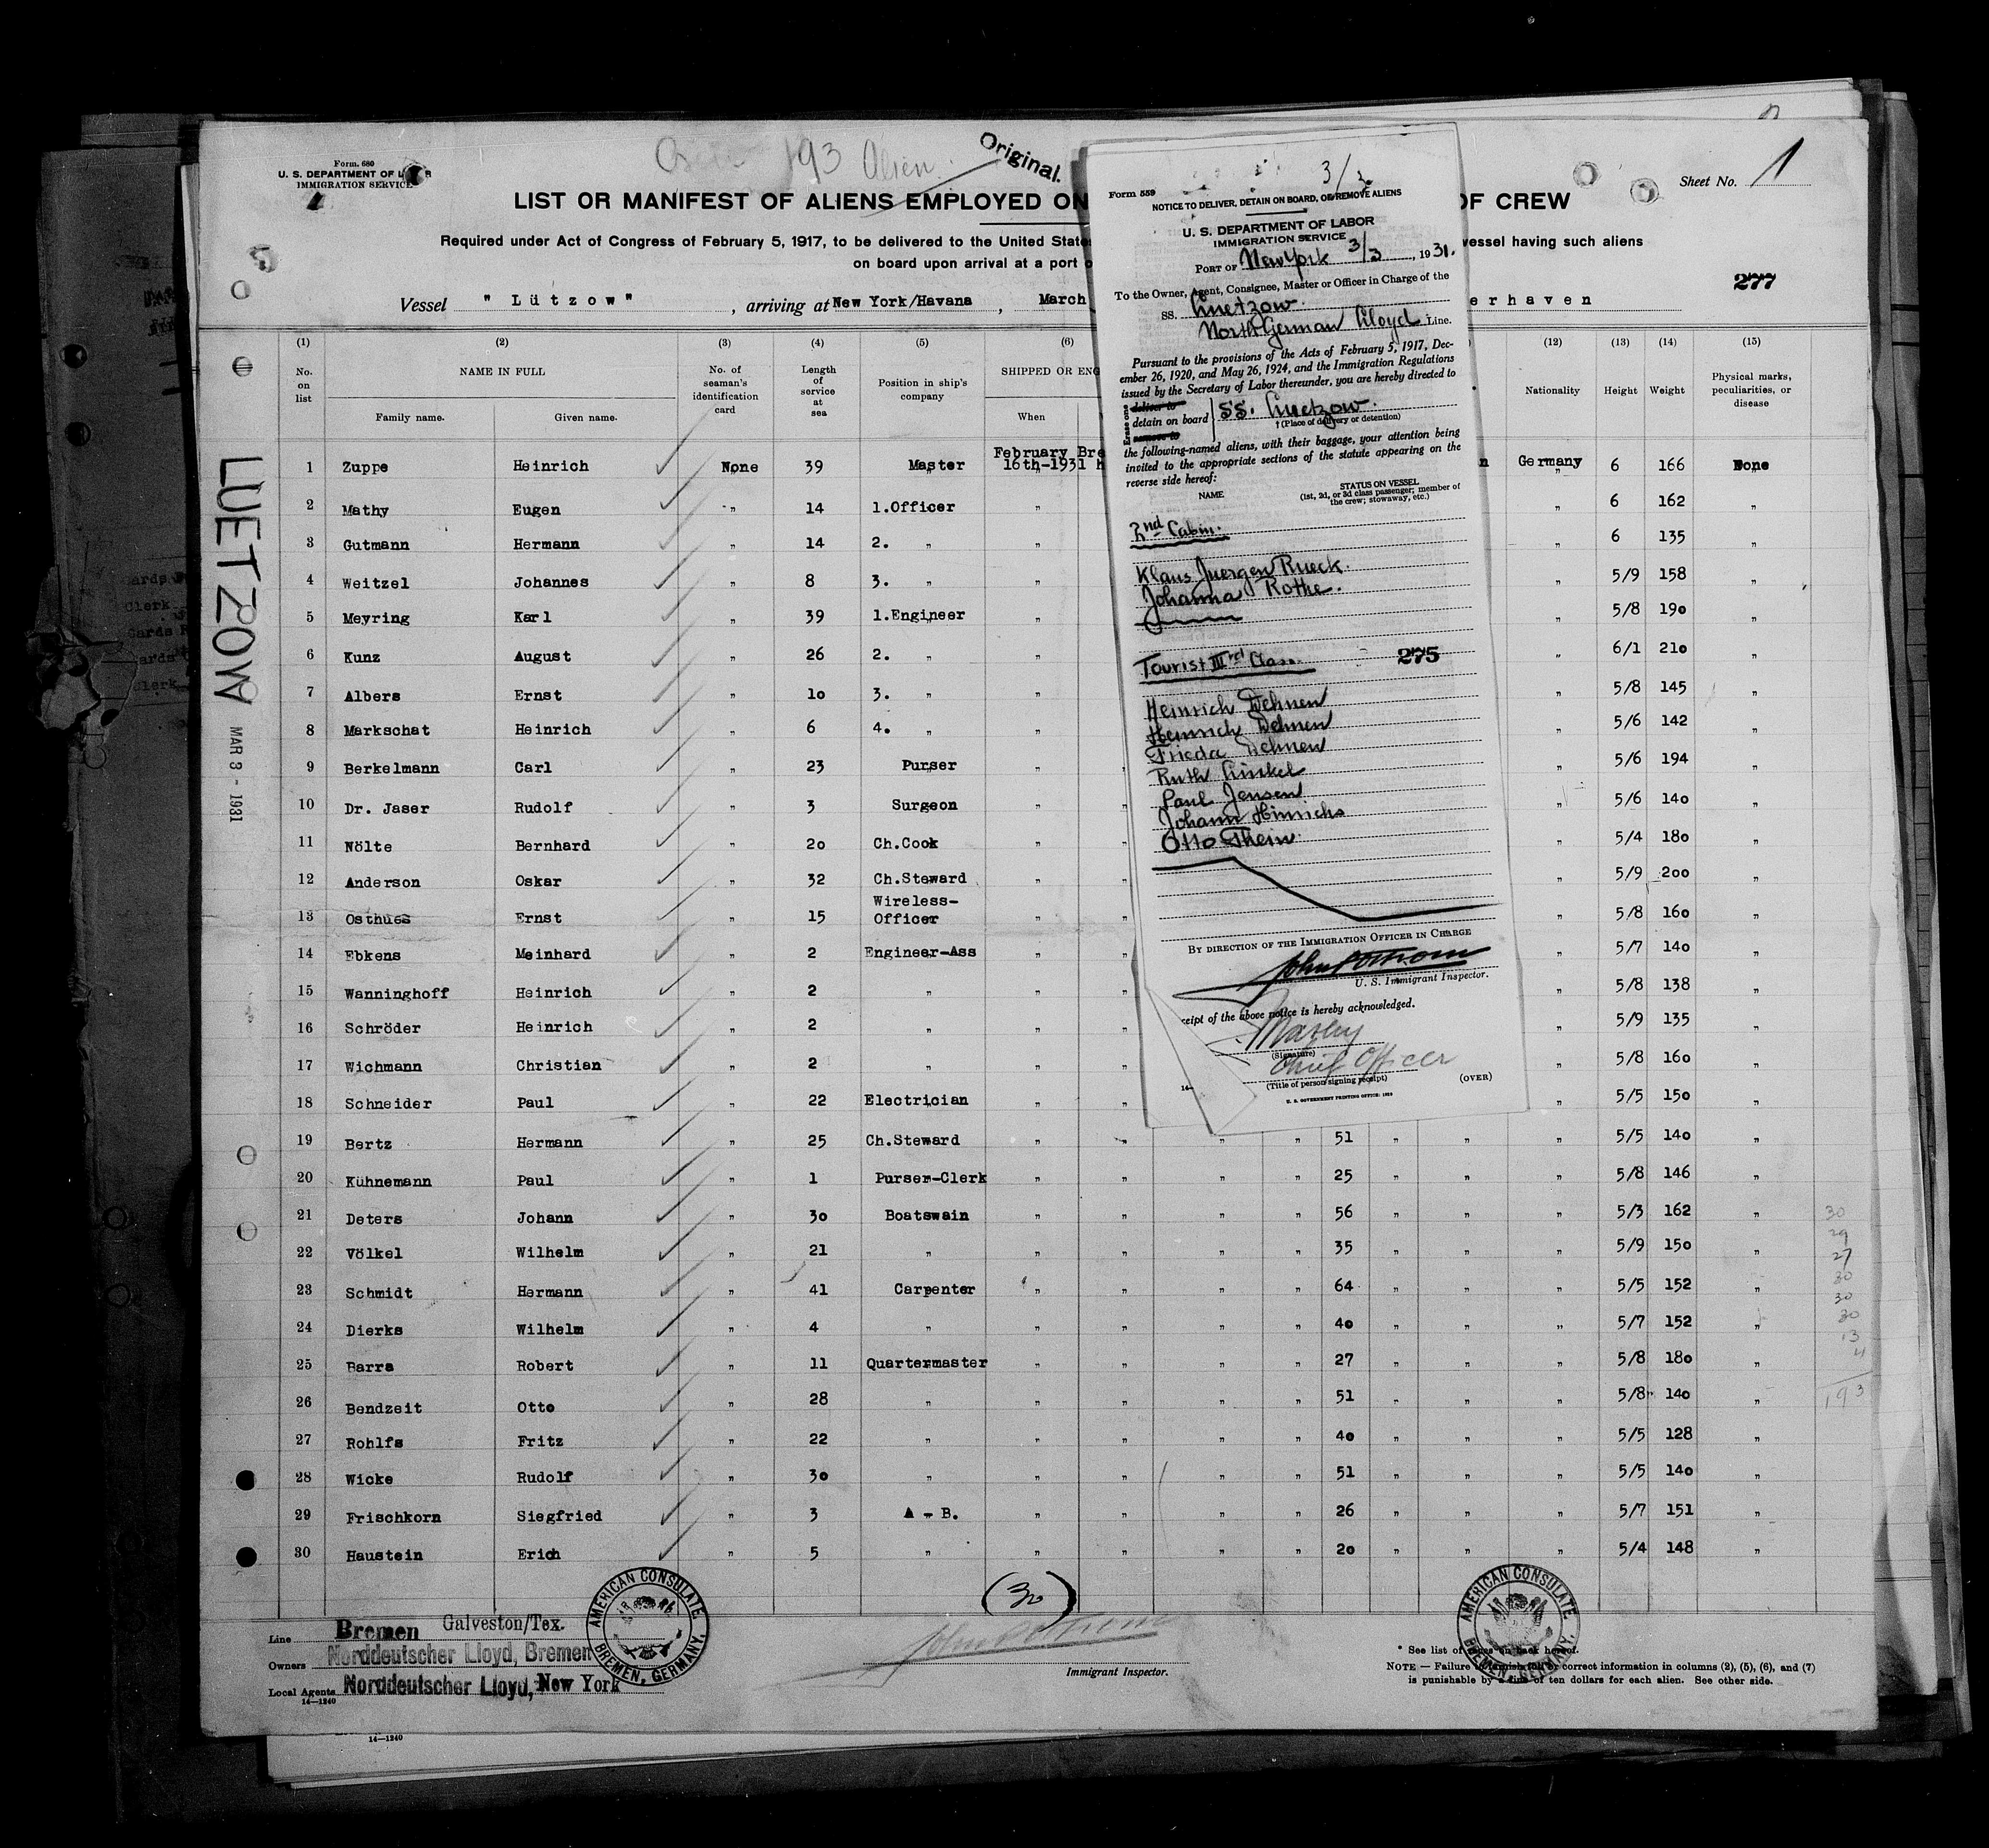 Form. 680
U. S. DEPARTMENT OF
IMMIGRATION SERVICE
193 Alien
Original.
Sheet No. 1
LIST OR MANIFEST OF ALIENS EMPLOYED ON OF CREW
Required under Act of Congress of February 5, 1917, to be delivered to the United vessel having such aliens
on board upon arrival at a port
277
Vessel " Lützow " , arriving at New York/Havana , March erhaven
(1) (2) (3) (4) (5) (6) (12) (13) (14) (15)
No. on list NAME IN FULL No. of seaman's identification card Length of service at sea Position in ship's company SHIPPED OR Nationality Height Weight Physical marks, peculiarities, or disease
Family name. Given name. When
February
1 Zuppe Heinrich None 39 Master 16th-1931 Germany 6 166 None
2 Mathy Eugen " 14 1.Officer " " 6 162 "
3 Gutmann Hermann " 14 2. " " " 6 135 "
4 Weitzel Johannes " 8 3. " " " 5/9 158 "
5 Meyring Karl " 39 1.Engineer " " 5/8 190 "
6 Kunz August " 26 2. " " " 6/1 210 "
7 Albers Ernst " 10 3. " " " 5/8 145 "
8 Markschat Heinrich " 6 4. " " " 5/6 142 "
9 Berkelmann Carl " 23 Purser " " 5/6 194 "
10 Dr. Jaser Rudolf " 3 Surgeon " " " 5/6 140 "
11 Nölte Bernhard " 20 Ch.Cook " " " 5/4 180 "
12 Anderson Oskar " 32 Ch.Steward " " " 5/9 200 "
13 Osthues Ernst " 15 Wireless-Officer " " " 5/8 160 "
14 Ebkens Meinhard " 2 Engineer-Ass " " " 5/7 140 "
15 Wanninghoff Heinrich " 2 " " " " 5/8 138 "
16 Schröder Heinrich " 2 " " " " 5/9 135 "
17 Wichmann Christian " 2 " " " " 5/8 160 "
18 Schneider Paul " 22 Electrician " " " 5/5 150 "
19 Bertz Hermann " 25 Ch.Steward " " " " 51 " " " 5/5 140 "
20 Kühnemann Paul " 1 Purser-Clerk " " " " 25 " " " 5/8 146 "
21 Deters Johann " 30 Boatswain " " " " 56 " " " 5/3 162 "
22 Völkel Wilhelm " 21 " " " " " 35 " " " 5/9 150 "
23 Schmidt Hermann " 41 Carpenter " " " " 64 " " " 5/5 152 "
24 Dierks Wilhelm " 4 " " " " " 40 " " " 5/7 152 "
25 Barra Robert " 11 Quartermaster " " " " 27 " " " 5/8 180 "
26 Bendzeit Otto " 28 " " " " " 51 " " " 5/8 140 "
27 Rohlfs Fritz " 22 " " " " " 40 " " " 5/5 128 "
28 Wicke Rudolf " 30 " " " " " 51 " " " 5/5 140 "
29 Frischkorn Siegfried " 3 A - B. " " " " 26 " " " 5/7 151 "
30 Haustein Erich " 5 " " " " " 20 " " " 5/4 148 "
(30)
30
29
27
30
30
30
13
4
193
LUETZOW
MAR 3 - 1931
Line Bremen Galveston/Tex.
Owners Norddeutscher Lloyd, Bremen
Local Agents Norddeutscher Lloyd, New York
14-1240
AMERICAN CONSULATE, BREMEN, GERMANY.
Immigrant Inspector.
AMERICAN CONSULATE, BREMEN, GERMANY.
* See list of
NOTE — Failure correct information in columns (2), (5), (6), and (7)
is punishable by a fine of ten dollars for each alien. See other side.
14-1240
Form 559
3/3
NOTICE TO DELIVER, DETAIN ON BOARD, OR REMOVE ALIENS
U. S. DEPARTMENT OF LABOR
IMMIGRATION SERVICE
PORT OF New York 3/3, 1931.
To the Owner, Agent, Consignee, Master or Officer in Charge of the
SS. Luetzow.
North German Lloyd Line.
Pursuant to the provisions of the Acts of February 5, 1917, Dec-
ember 26, 1920, and May 26, 1924, and the Immigration Regulations
issued by the Secretary of Labor thereunder, you are hereby directed to
Erase one
deliver to
detain on board SS. Luetzow.
remove to
† (Place of delivery or detention)
the following-named aliens, with their baggage, your attention being
invited to the appropriate sections of the statute appearing on the
reverse side hereof:
NAME STATUS ON VESSEL
(1st, 2d, or 3d class passenger; member of
the crew; stowaway, etc.)
2nd Cabin.
Klaus Juergen Rueck.
Johanna Rothe.
Tourist IIIrd Class.
275
Heinrich Dehnen
Heinrich Dehnen
Frieda Dehnen
Ruth Linkel
Paul Jensen
Johann Hinrichs
Otto Thein.
BY DIRECTION OF THE IMMIGRATION OFFICER IN CHARGE
U. S. Immigrant Inspector.
ceipt of the above notice is hereby acknowledged.
(Signature)
Chief Officer
(Title of person signing receipt)
(OVER)
14-
U. S. GOVERNMENT PRINTING OFFICE: 1929